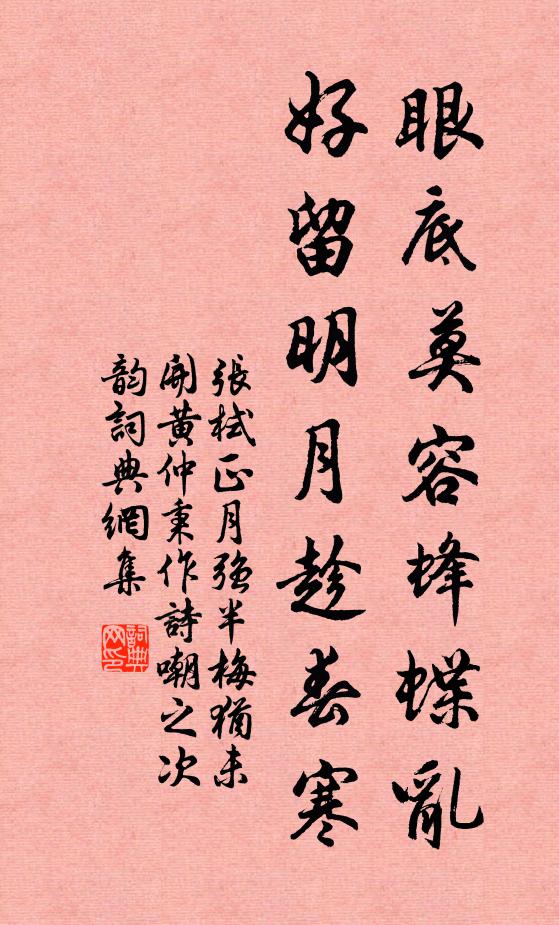 眼底莫容蜂蝶亂
好留明月趁春寒
張栻正月強半梅猶未
開黃仲秉作詩嘲之次
韵詞典網集
詞典网印